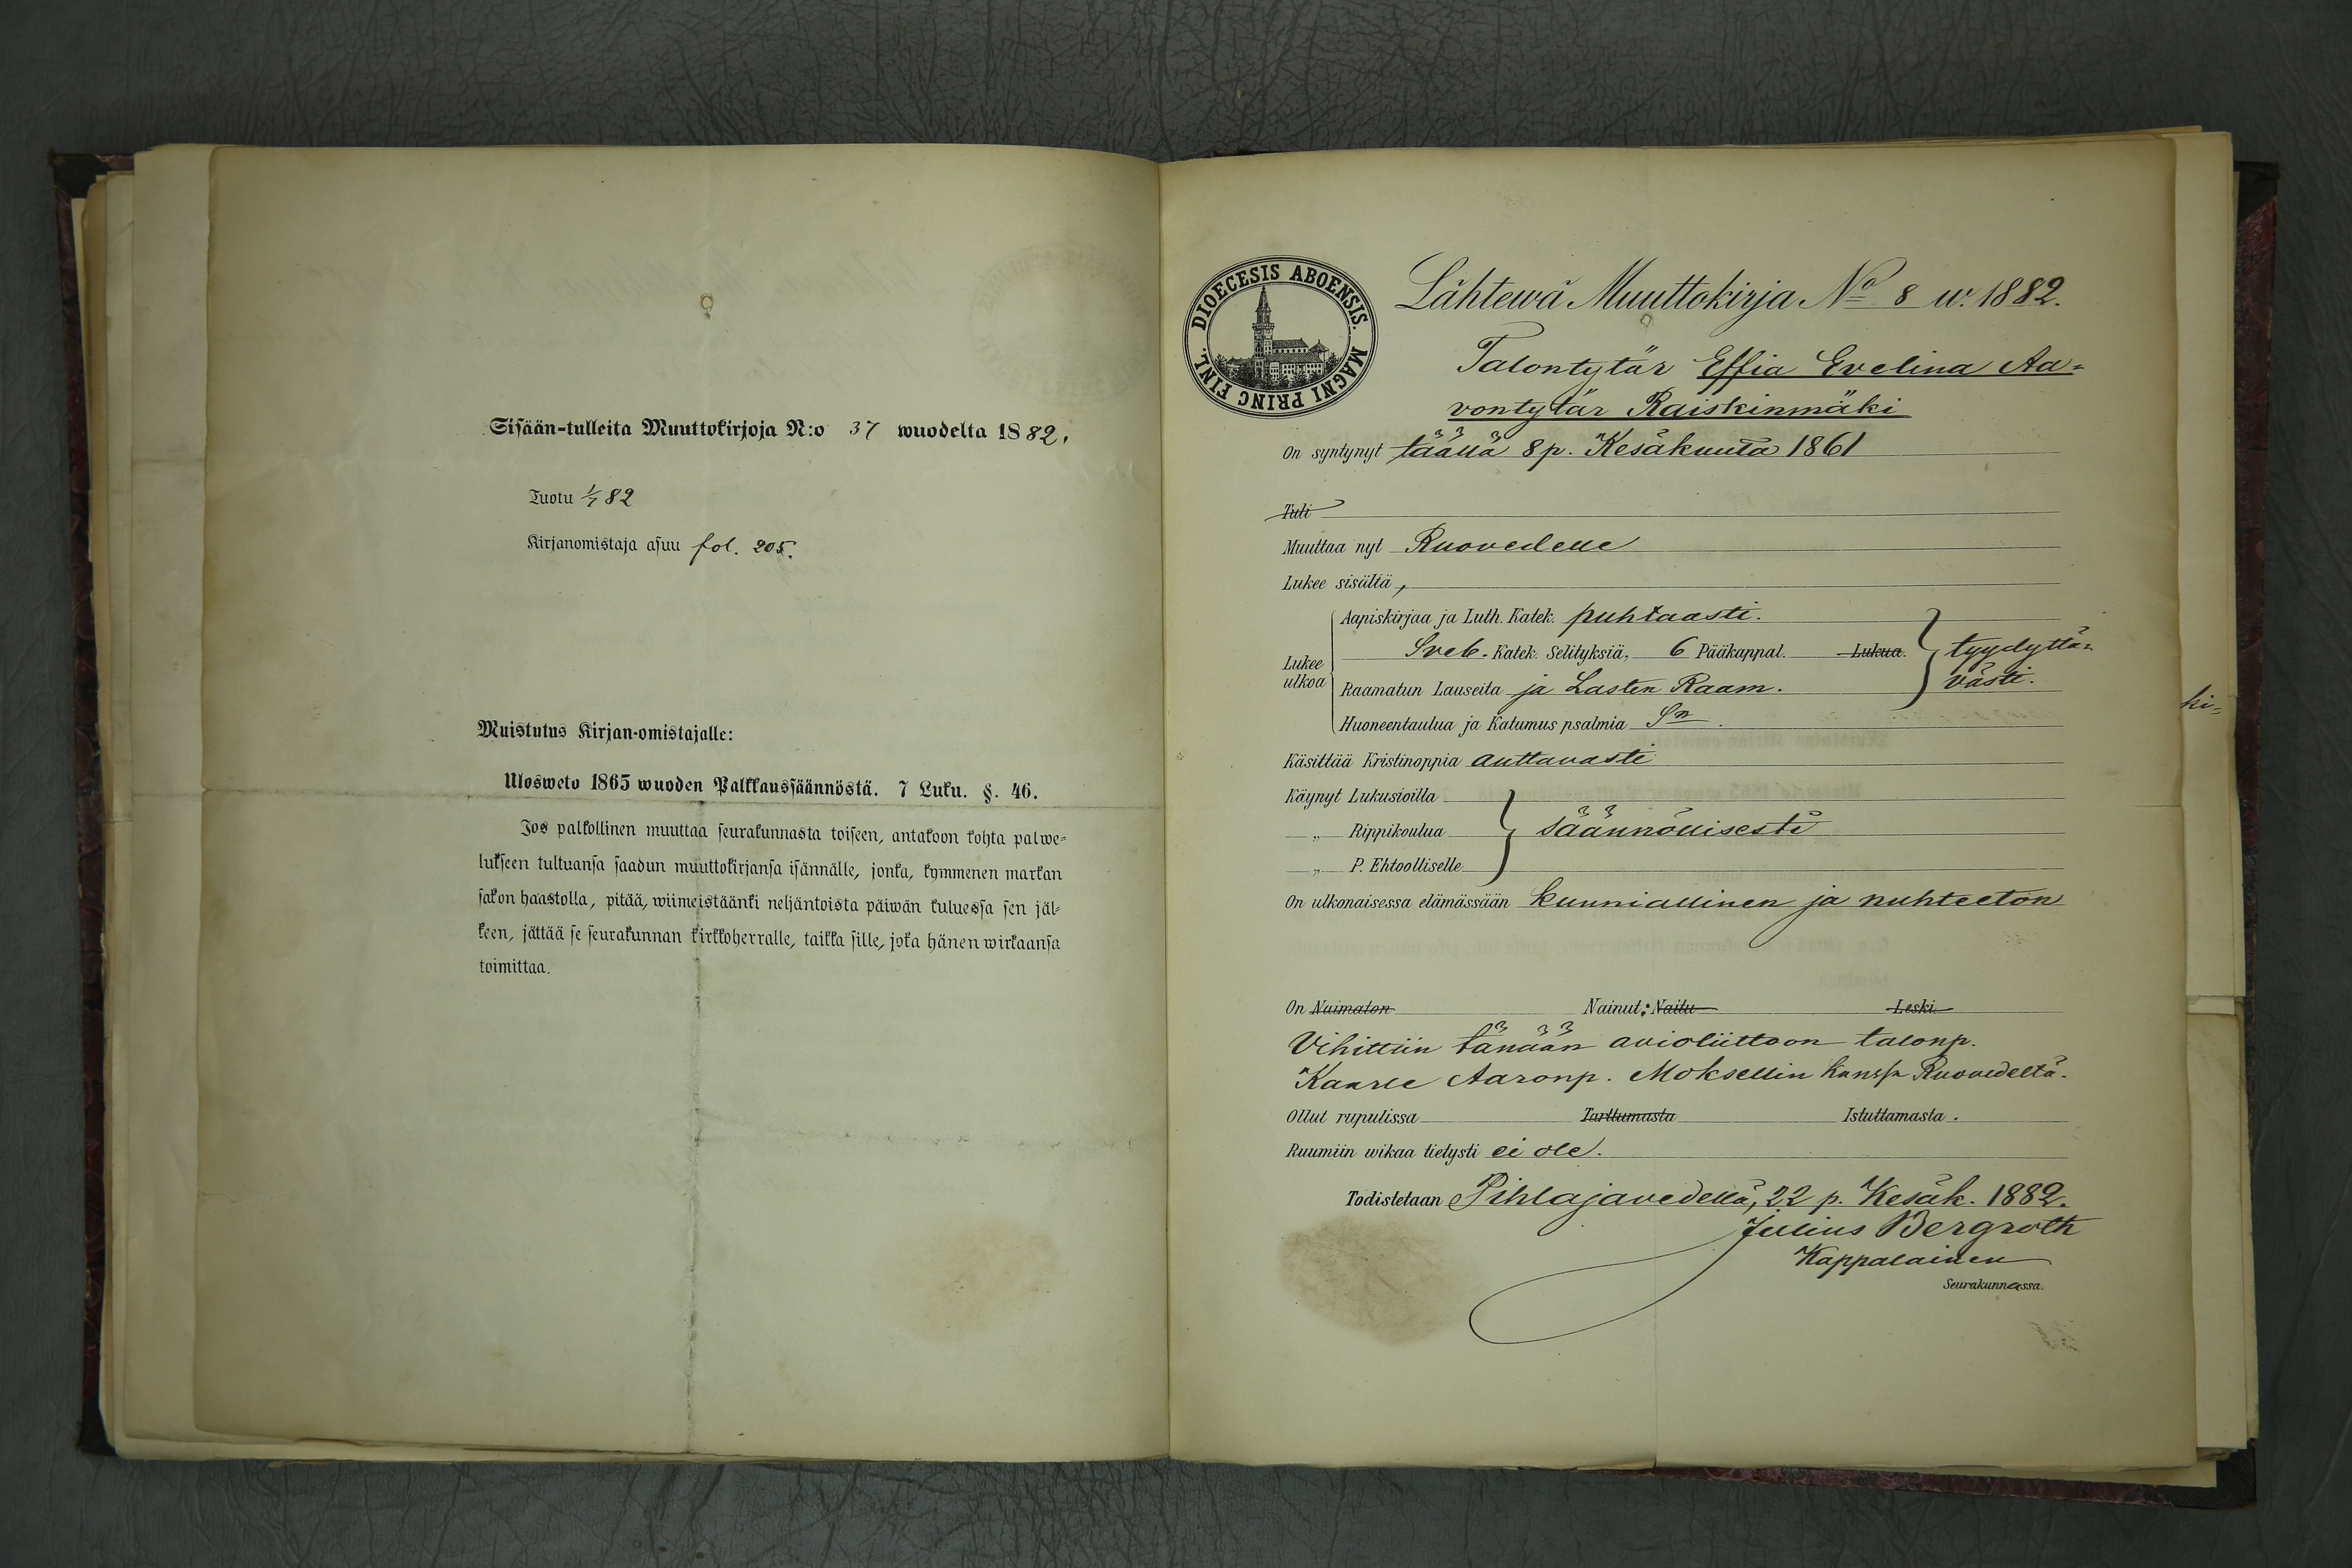 Sisään-tulleita Muuttokirjoja N:o 37 wuodelta 1882.
Tuotu 1/7 82
Kirjanomistaja asuu fol. 205.
Muistutus Kirjan-omistajalle:
Ulosweto 1865 wuoden Palkkaussäännöstä. 7 Luku. §. 46.
Jos palkollinen muuttaa seurakunnasta toiseen, antakoon kohta palwe-
lukseen tultuansa saadun muuttokirjansa isännälle, jonka, kymmenen markan
sakon haastolla, pitää, wiimeistäänki neljäntoista päiwän kuluessa sen jäl-
keen, jättää se seurakunnan kirkkoherralle, taikka sille, joka hänen wirkaansa
toimittaa.
DIOECESIS ABOENSIS. MAGNI PRINC FINL.
Lähtewä Muuttokirja No 8 w. 1882.
Talontytär Effia Evelina Aa-
vontytär Raiskinmäki
On syntynyt täällä 8 p. Kesäkuuta 1861
Tuli
Muuttaa nyt Ruovedelle
Lukee sisältä,
Aapiskirjaa ja Luth. Katek. puhtaasti.
Sveb. Katek. Selityksiä, 6 Pääkappal. Lukua. tyydyttä-
Lukee ulkoa
Raamatun Lauseita ja Lasten Raam. västi.
Huoneentaulua ja Katumus psalmia Sn.
Käsittää Kristinoppia auttavasti
Käynyt Lukusioilla
„ Rippikoulua säännöllisesti
„ P. Ehtoolliselle
On ulkonaisessa elämässään kunniallinen ja nuhteeton
On Naimaton Nainut: Naitu Leski.
Vihittiin tänään avioliittoon talonp.
Kaarle Aaronp. Moksellin kanssa Ruovedeltä.
Ollut rupulissa Tarttumasta Istuttamasta.
Ruumiin wikaa tietysti ei ole.
Todistetaan Pihlajavedellä, 22 p. Kesäk. 1882.
Julius Bergroth
Kappalainen
Seurakunnassa.
ki-